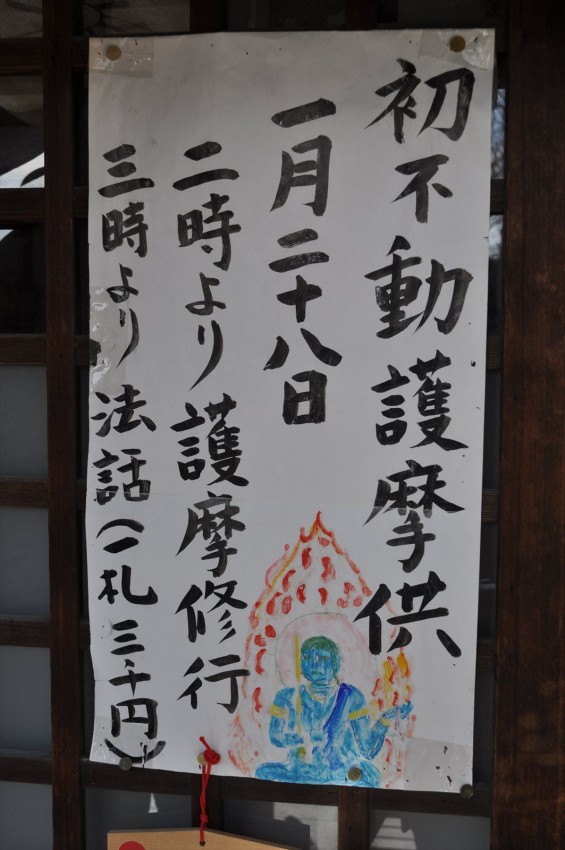 初不動護摩供
一月二十八日
二時より護摩修行
三時より法話(一札三千円)